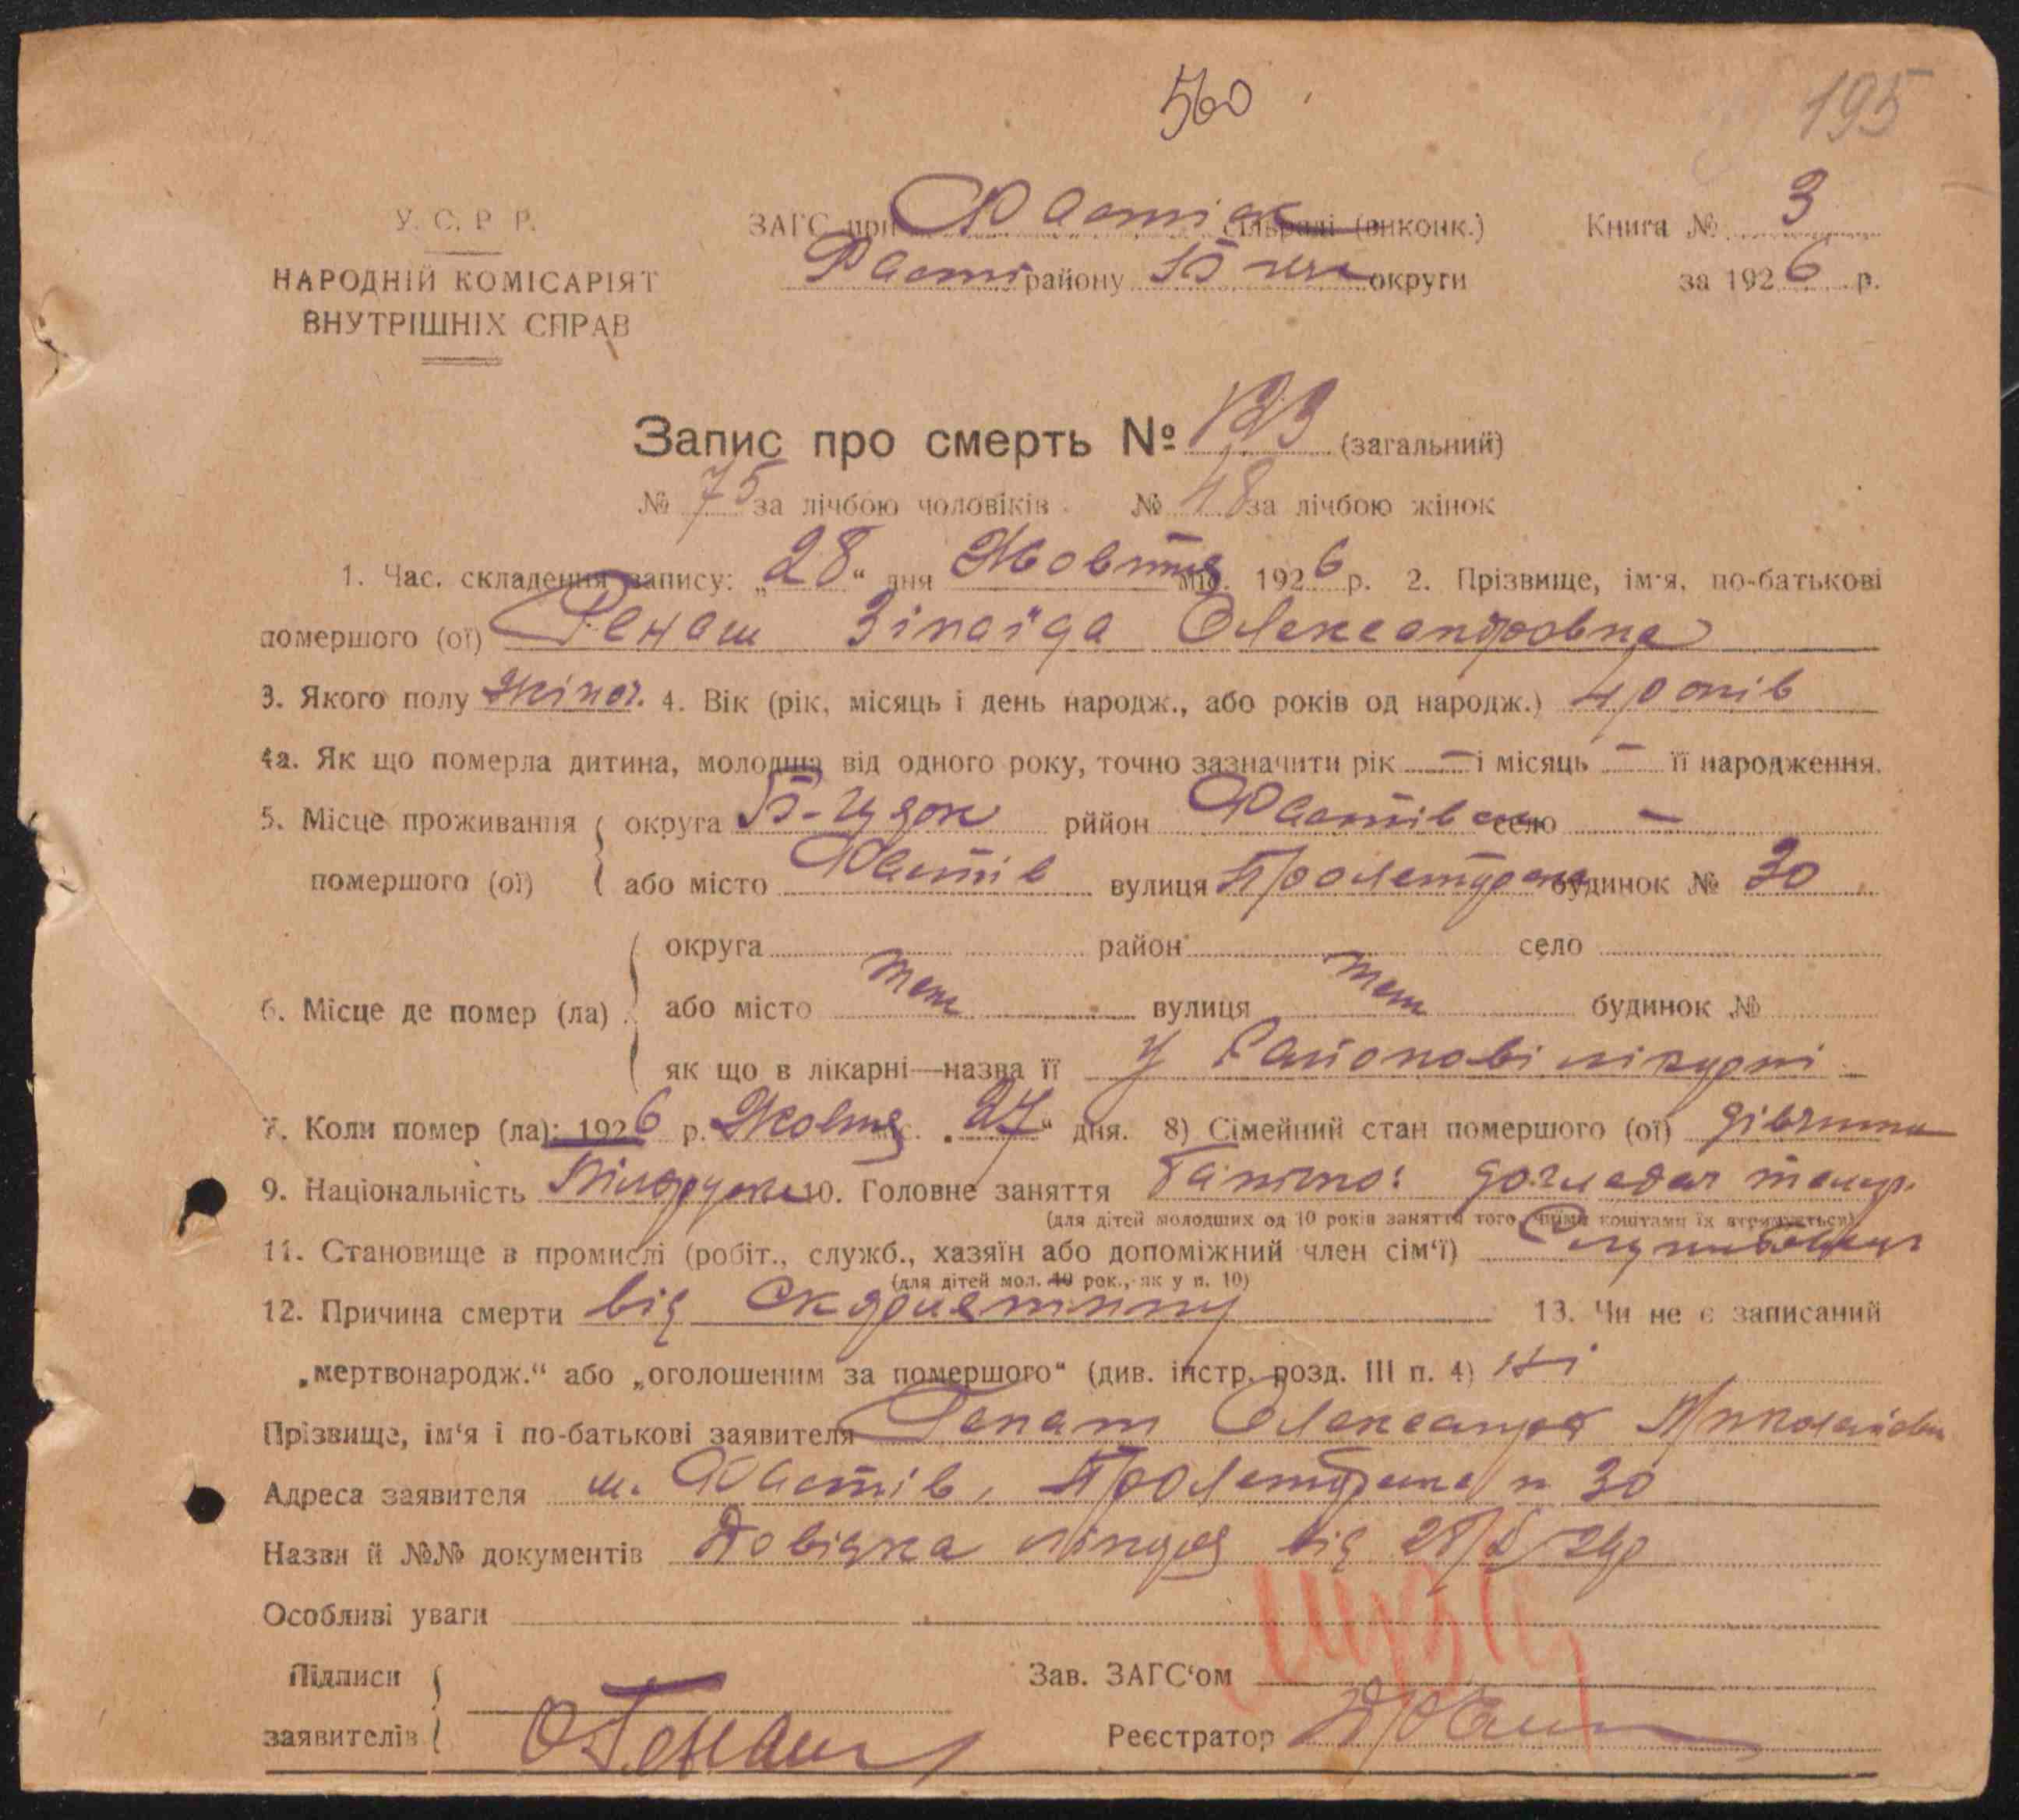 560
195
У. С. Р. Р.
НАРОДНІЙ КОМІСАРІЯТ
ВНУТРІШНІХ СПРАВ
ЗАГС при Фастівск сільраді (виконк.)
Фаст району Б Це округи
Книга № 3
за 1926 р.
Запис про смерть № 123 (загальний)
№ 75 за лічбою чоловіків № 48 за лічбою жінок
1. Час. складення запису: „28“ дня Жовтня міс. 1926 р. 2. Прізвище, ім'я, по-батькові
помершого (ої) Генаш Зінаіда Олександровна
3. Якого полу жіноч. 4. Вік (рік, місяць і день народж., або років од народж.) 4 років
4а. Як що померла дитина, молодша від одного року, точно зазначити рік — і місяць — її народження.
5. Місце проживання округа Б-Церк рййон Фастівськ село —
помершого (ої) або місто Фастів вулиця Пролетарска будинок № 30
округа район село
6. Місце де помер (ла) або місто теж вулиця теж будинок №
як що в лікарні—назва її у Районові лікарні
7. Коли помер (ла): 1926 р. Жовтня міс. „27“ дня. 8) Сімейний стан помершого (ої) дівчина
9. Національність Білорус 10. Головне заняття Батько: доглядач
(для дітей молодших од 10 років заняття того, чиїми коштами їх втримується)
11. Становище в промислі (робіт., служб., хазяїн або допоміжний член сім'ї) Службовець
(для дітей мол. 10 рок., як у п. 10)
12. Причина смерти від Скарлятину 13. Чи не є записаний
„мертвонародж.“ або „оголошеним за помершого“ (див. інстр. розд. III п. 4) Ні
Прізвище, ім'я і по-батькові заявителя Генаш Олександр Миколайович
Адреса заявителя м. Фастів, Пролетарска № 30
Назви й №№ документів Довідка лікаря від 28/X 26р
Особливі уваги
Підписи
заявителів О Генаш
Зав. ЗАГС'ом
Реєстратор